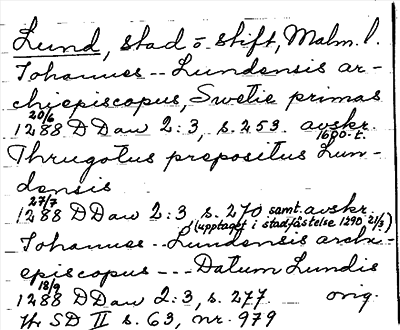 Lund, stad o. stift, Malm. l.
Johannes -- Lundensis ar-
chiepiscopus, Swetie primas
20/6
1288 DDan 2:3, s. 253. avskr.
1600-t.
Thrugotus prepositus Lun-
densis
27/7
1288 DDan 2:3, s. 270 samt. avskr.
(upptaget i stadfästelse 1290 21/3)
Johannes -- Lundensis archi-
episcopus --- Datum Lundis
18/9
1288 DDan 2:3, s. 277 orig.
Tr. SD II s. 63, nr. 979